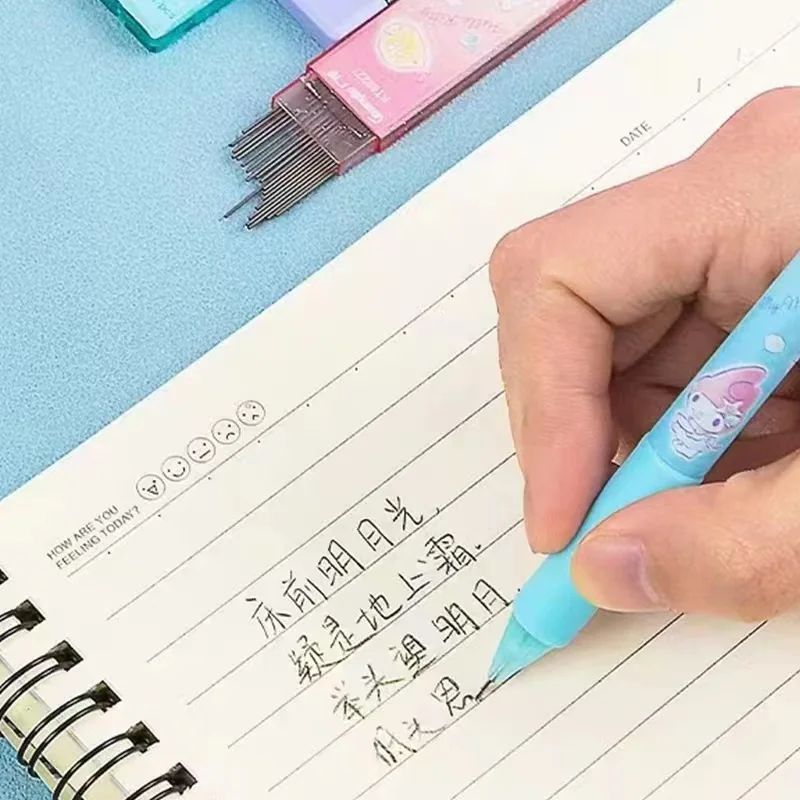 Hello Kitty
KT80227
DATE / /
HOW ARE YOU
FEELING TODAY?
床前明月光,
疑是地上霜.
举头望明月.
低头思
My M